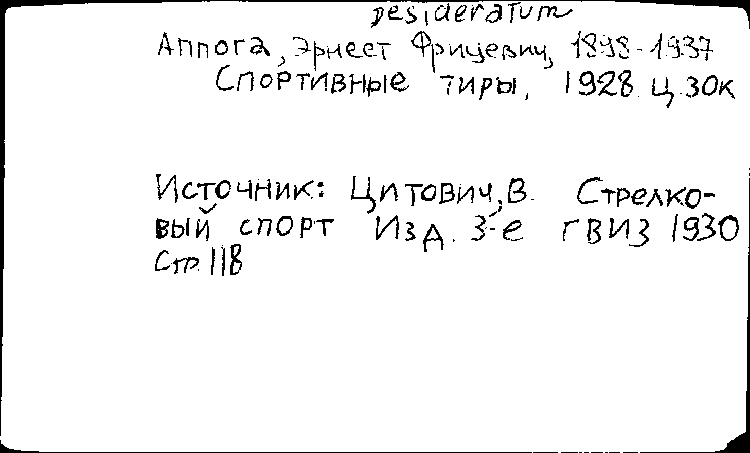 Desideratum
Аппога, Эрнест Фрицевич, 1898-1937
Спортивные тиры, 1928 ц. 30к
Источник: Цитович, В. Стрелко-
вый спорт Изд. 3-е ГВИЗ 1930
Стр. 118